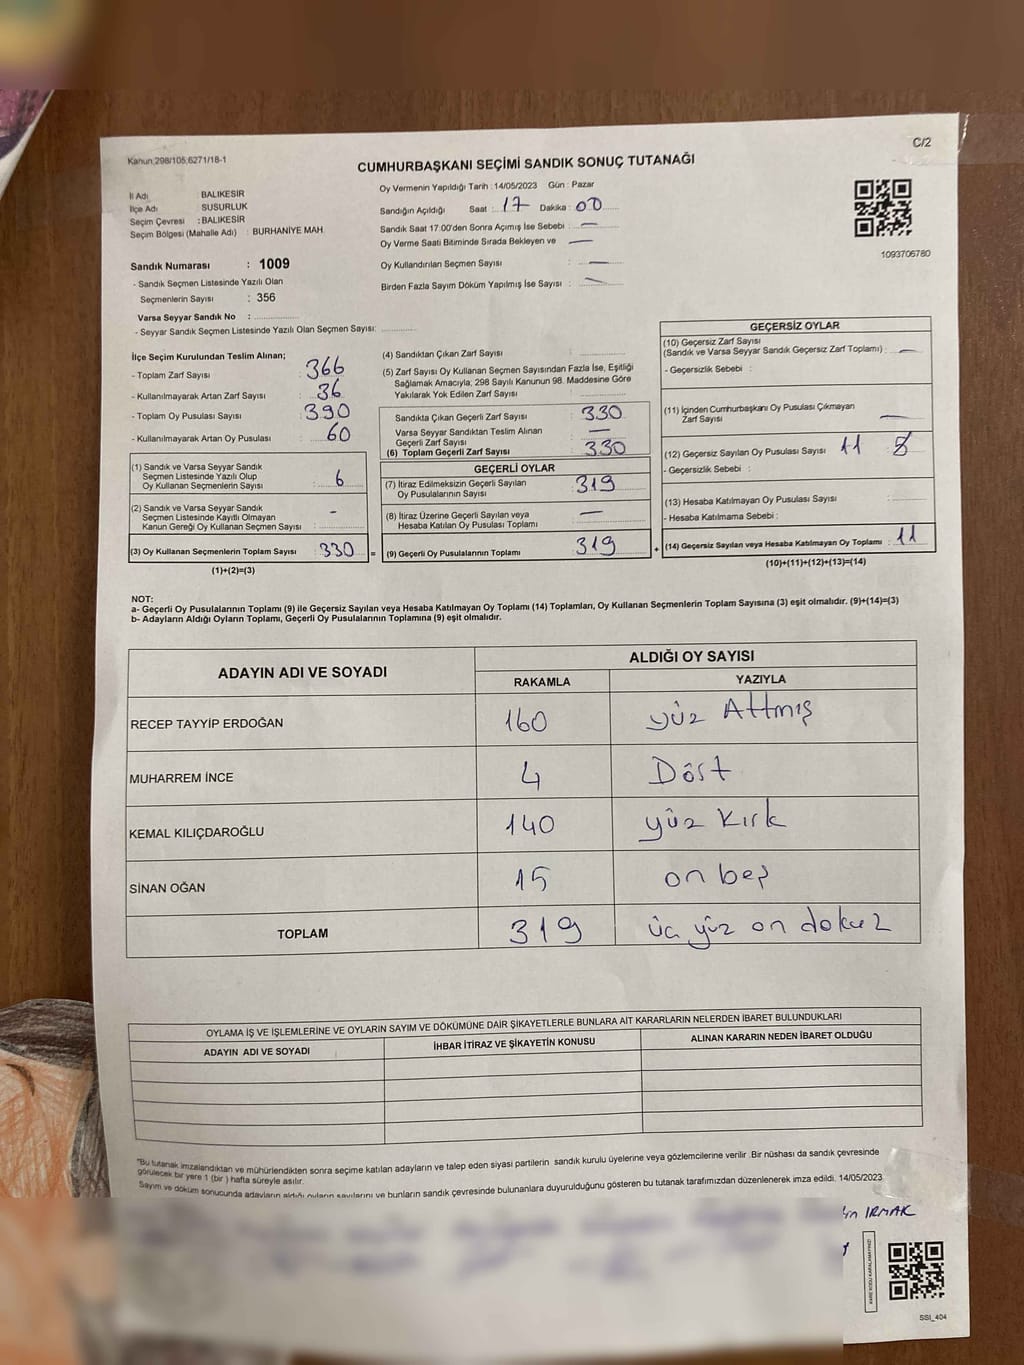 C/2
Kanun;298/105;6271/18-1
CUMHURBAŞKANI SEÇİMİ SANDIK SONUÇ TUTANAĞI
İl Adı BALIKESİR
İlçe Adı SUSURLUK
Seçim Çevresi : BALIKESİR
Seçim Bölgesi (Mahalle Adı) : BURHANİYE MAH.
Oy Vermenin Yapıldığı Tarih : 14/05/2023 Gün : Pazar
Sandığın Açıldığı Saat : 17 Dakika : 00
Sandık Saat 17.00'den Sonra Açımış İse Sebebi : —
Oy Verme Saati Bitiminde Sırada Bekleyen ve —
Oy Kullandırılan Seçmen Sayısı : —
Birden Fazla Sayım Döküm Yapılmış İse Sayısı : —
1093706780
Sandık Numarası : 1009
- Sandık Seçmen Listesinde Yazılı Olan
Seçmenlerin Sayısı : 356
Varsa Seyyar Sandık No :
- Seyyar Sandık Seçmen Listesinde Yazılı Olan Seçmen Sayısı:
İlçe Seçim Kurulundan Teslim Alınan;
- Toplam Zarf Sayısı : 366
- Kullanılmayarak Artan Zarf Sayısı : 36
- Toplam Oy Pusulası Sayısı : 390
- Kullanılmayarak Artan Oy Pusulası : 60
(1) Sandık ve Varsa Seyyar Sandık
Seçmen Listesinde Yazılı Olup
Oy Kullanan Seçmenlerin Sayısı : 6
(2) Sandık ve Varsa Seyyar Sandık
Seçmen Listesinde Kayıtlı Olmayan
Kanun Gereği Oy Kullanan Seçmen Sayısı : -
(3) Oy Kullanan Seçmenlerin Toplam Sayısı : 330 =
(1)+(2)=(3)
(4) Sandıktan Çıkan Zarf Sayısı :
(5) Zarf Sayısı Oy Kullanan Seçmen Sayısından Fazla İse, Eşitliği
Sağlamak Amacıyla; 298 Sayılı Kanunun 98. Maddesine Göre
Yakılarak Yok Edilen Zarf Sayısı :
Sandıkta Çıkan Geçerli Zarf Sayısı : 330
Varsa Seyyar Sandıktan Teslim Alınan
Geçerli Zarf Sayısı : —
(6) Toplam Geçerli Zarf Sayısı : 330
GEÇERLİ OYLAR
(7) İtiraz Edilmeksizin Geçerli Sayılan
Oy Pusulalarının Sayısı : 319
(8) İtiraz Üzerine Geçerli Sayılan veya
Hesaba Katılan Oy Pusulası Toplamı : —
(9) Geçerli Oy Pusulalarının Toplamı : 319 +
GEÇERSİZ OYLAR
(10) Geçersiz Zarf Sayısı
(Sandık ve Varsa Seyyar Sandık Geçersiz Zarf Toplamı) : —
- Geçersizlik Sebebi :
(11) İçinden Cumhurbaşkanı Oy Pusulası Çıkmayan
Zarf Sayısı : —
(12) Geçersiz Sayılan Oy Pusulası Sayısı : 11
- Geçersizlik Sebebi :
(13) Hesaba Katılmayan Oy Pusulası Sayısı :
- Hesaba Katılmama Sebebi :
(14) Geçersiz Sayılan veya Hesaba Katılmayan Oy Toplamı : 11
(10)+(11)+(12)+(13)=(14)
NOT:
a- Geçerli Oy Pusulalarının Toplamı (9) ile Geçersiz Sayılan veya Hesaba Katılmayan Oy Toplamı (14) Toplamları, Oy Kullanan Seçmenlerin Toplam Sayısına (3) eşit olmalıdır. (9)+(14)=(3)
b- Adayların Aldığı Oyların Toplamı, Geçerli Oy Pusulalarının Toplamına (9) eşit olmalıdır.
ADAYIN ADI VE SOYADI ALDIĞI OY SAYISI
RAKAMLA YAZIYLA
RECEP TAYYİP ERDOĞAN 160 yüz Altmış
MUHARREM İNCE 4 Döst
KEMAL KILIÇDAROĞLU 140 yüz kırk
SİNAN OĞAN 15 on beş
TOPLAM 319 üç yüz on dokuz
OYLAMA İŞ VE İŞLEMLERİNE VE OYLARIN SAYIM VE DÖKÜMÜNE DAİR ŞİKAYETLERLE BUNLARA AİT KARARLARIN NELERDEN İBARET BULUNDUKLARI
ADAYIN ADI VE SOYADI İHBAR İTİRAZ VE ŞİKAYETİN KONUSU ALINAN KARARIN NEDEN İBARET OLDUĞU
"Bu tutanak imzalandıktan ve mühürlendikten sonra seçime katılan adayların ve talep eden siyasi partilerin sandık kurulu üyelerine veya gözlemcilerine verilir .Bir nüshası da sandık çevresinde
görülecek bir yere 1 (bir ) hafta süreyle asılır.
Sayım ve döküm sonucunda adayların aldığı oyların sayılarını ve bunların sandık çevresinde bulunanlara duyurulduğunu gösteren bu tutanak tarafımızdan düzenlenerek imza edildi. 14/05/2023
IRMAK
KARE KODU KARALAMAYINIZ!
SSI_404